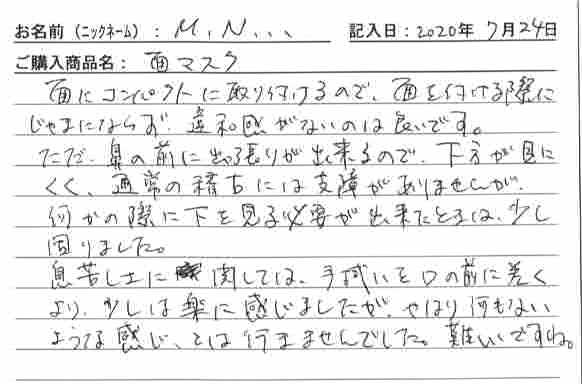 お名前（ニックネーム）： M.N... 記入日：2020年 7月24日
ご購入商品名： 面マスク
面にコンパクトに取り付けるので、面を付ける際に
じゃまにならず、違和感がないのは良いです。
ただ、鼻の前に出っ張りが出来るので、下方が見に
くく、通常の稽古には支障がありませんが、
何かの際に下を見る必要が出来たときは、少し
困りました。
息苦しさに関しては、手拭いを口の前に巻く
より、少しは楽に感じましたが、やはり何もない
ような感じ、とは行きませんでした。難しいですね。